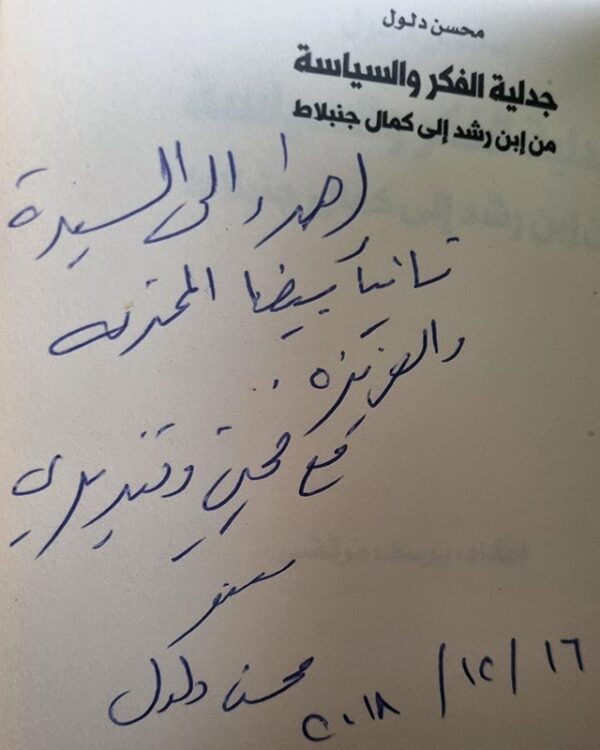 محسن دلول
جدلية الفكر والسياسة
من إبن رشد إلى كمال جنبلاط
إهداء الى السيدة
تانيا بيضا المحترمة
والعزيزه ..
مع محبتي وتقديري
محسن دلول
١٦ / ١٢ / ٢٠١٨